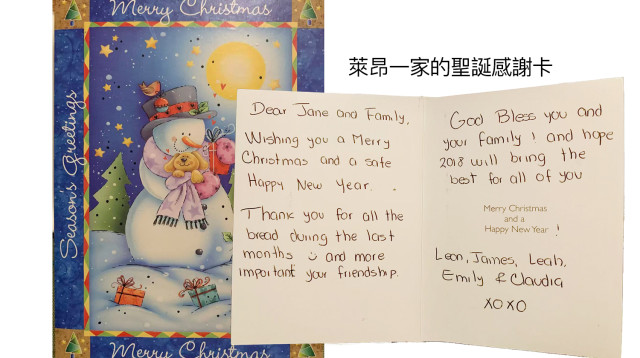 Merry Christmas
Season's Greetings
Merry Christmas
萊昂一家的聖誕感謝卡
Dear Jane and Family,
Wishing you a Merry
Christmas and a safe
Happy New Year.
Thank you for all the
bread during the last
months and more
important your friendship.
God Bless you and
your family! and hope
2018 will bring the
best for all of you
Merry Christmas
and a
Happy New Year!
Leon, James, Leah,
Emily & Claudia
XOXO